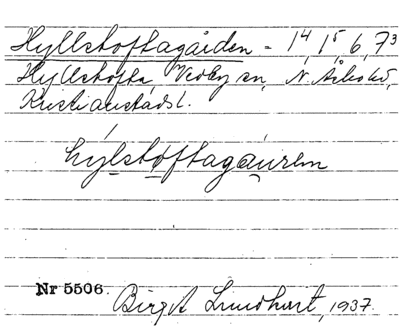 Hyllstoftagården = 1⁴, 1⁵, 6, 7³
Hyllstofta, Vedby sn, N. Åsbo hd,
Kristianstads l.
hýlstòftagåuren
Nr 5506. Birgit Lundhart, 1937.